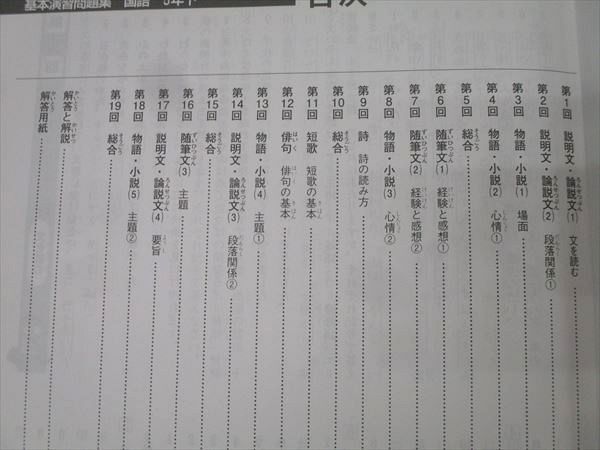 基本演習問題集 国語 5年下
目次
第1回 説明文・論説文(1) 文を読む
第2回 説明文・論説文(2) 段落関係①
第3回 物語・小説(1) 場面
第4回 物語・小説(2) 心情①
第5回 総合
第6回 随筆文(1) 経験と感想①
第7回 随筆文(2) 経験と感想②
第8回 物語・小説(3) 心情②
第9回 詩 詩の読み方
第10回 総合
第11回 短歌 短歌の基本
第12回 俳句 俳句の基本
第13回 物語・小説(4) 主題①
第14回 説明文・論説文(3) 段落関係②
第15回 総合
第16回 随筆文(3) 主題
第17回 説明文・論説文(4) 要旨
第18回 物語・小説(5) 主題②
第19回 総合
解答と解説
解答用紙